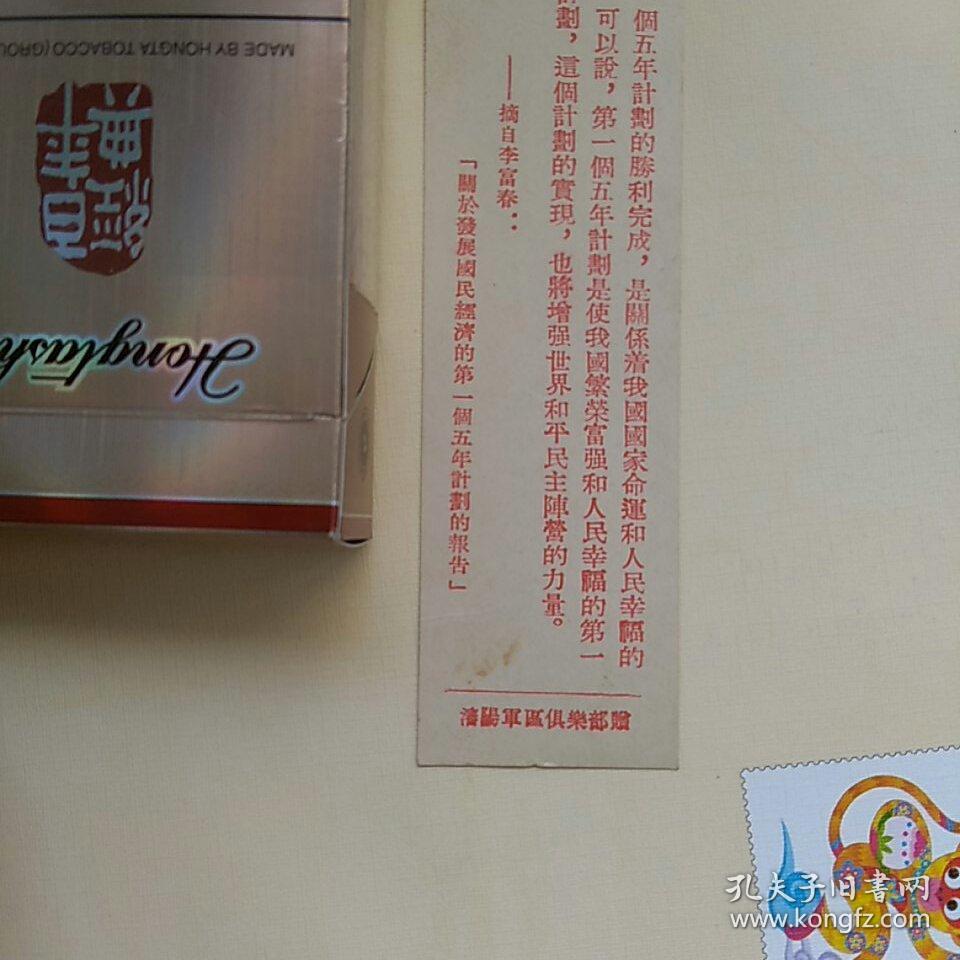 個五年計劃的勝利完成，是關係着我國國家命運和人民幸福的
可以說，第一個五年計劃是使我國繁榮富强和人民幸福的第一
計劃，這個計劃的實現，也將增强世界和平民主陣營的力量。
——摘自李富春：
「關於發展國民經濟的第一個五年計劃的報告」
瀋陽軍區俱樂部贈
MADE BY HONGTA TOBACCO (GROU
Hongtash
孔夫子旧書网
www.kongfz.com